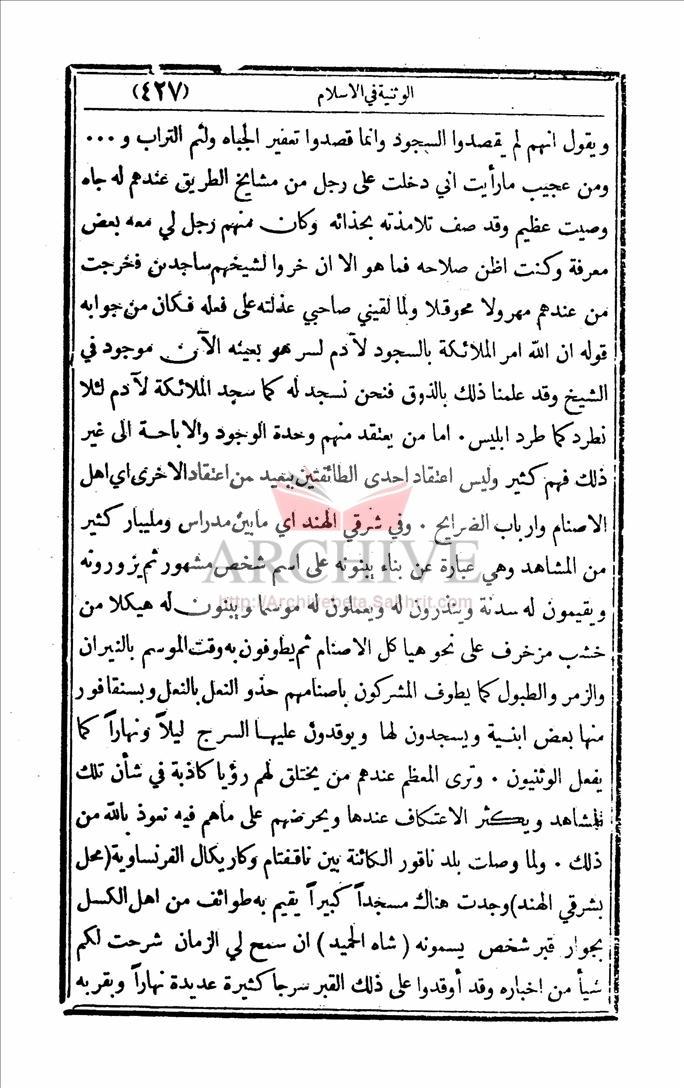 الوثنية في الاسلام (٤٢٧)
ويقول انهم لم يقصدوا السجود وانما قصدوا تعفير الجباه ولثم التراب و ...
ومن عجيب مارأيت اني دخلت على رجل من مشايخ الطريق عندهم له جاه
وصيت عظيم وقد صف تلامذته بحذائه وكان منهم رجل لي معه بعض
معرفة وكنت اظن صلاحه فما هو الا ان خروا لشيخهم ساجدين فخرجت
من عندهم مهرولا محوقلا ولما لقيني صاحبي عذلته على فعله فكان من جوابه
قوله ان الله امر الملائكة بالسجود لآدم لسر هو بعينه الآن موجود في
الشيخ وقد علمنا ذلك بالذوق فنحن نسجد له كما سجد الملائكة لآدم لئلا
نطرد كما طرد ابليس . اما من يعتقد منهم وحدة الوجود والاباحة الى غير
ذلك فهم كثير وليس اعتقاد احدى الطائفتين ببعيد من اعتقاد الاخرى اي اهل
الاصنام وارباب الضرايح . وفي شرقي الهند اي مابين مدراس ومليبار كثير
من المشاهد وهي عبارة عن بناء يبنونه على اسم شخص مشهور ثم يزورونه
ويقيمون له سدنة وينذرون له ويعملون له موسما ويبنون له هيكلا من
خشب مزخرف على نحو هياكل الاصنام ثم يطوفون به وقت الموسم بالنيران
والزمر والطبول كما يطوف المشركون باصنامهم حذو النعل بالنعل وبسنقافور
منها بعض ابنية ويسجدون لها ويوقدون عليها السرج ليلاً ونهاراً كما
يفعل الوثنيون . وترى المعظم عندهم من يختلق لهم رؤيا كاذبة في شأن تلك
المشاهد ويكثر الاعتكاف عندها ويحرضهم على ماهم فيه نعوذ بالله من
ذلك . ولما وصلت بلد ناقور الكائنة بين ناقفتام وكاريكال الفرنساوية (محل
بشرقي الهند) وجدت هناك مسجداً كبيراً يقيم به طوائف من اهل الكسل
بجوار قبر شخص يسمونه ( شاه الحميد ) ان سمح لي الزمان شرحت لكم
شيأ من اخباره وقد أوقدوا على ذلك القبر سرجا كثيرة عديدة نهاراً وبقربه
ARCHIVE
http://Archivebeta.Sakhrit.com